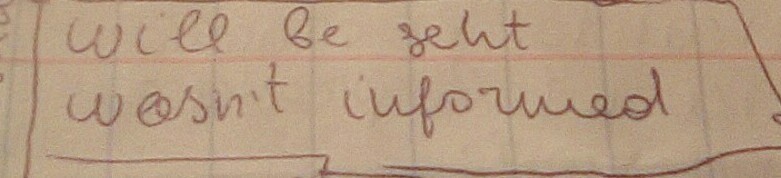 will be sent
wasn't informed